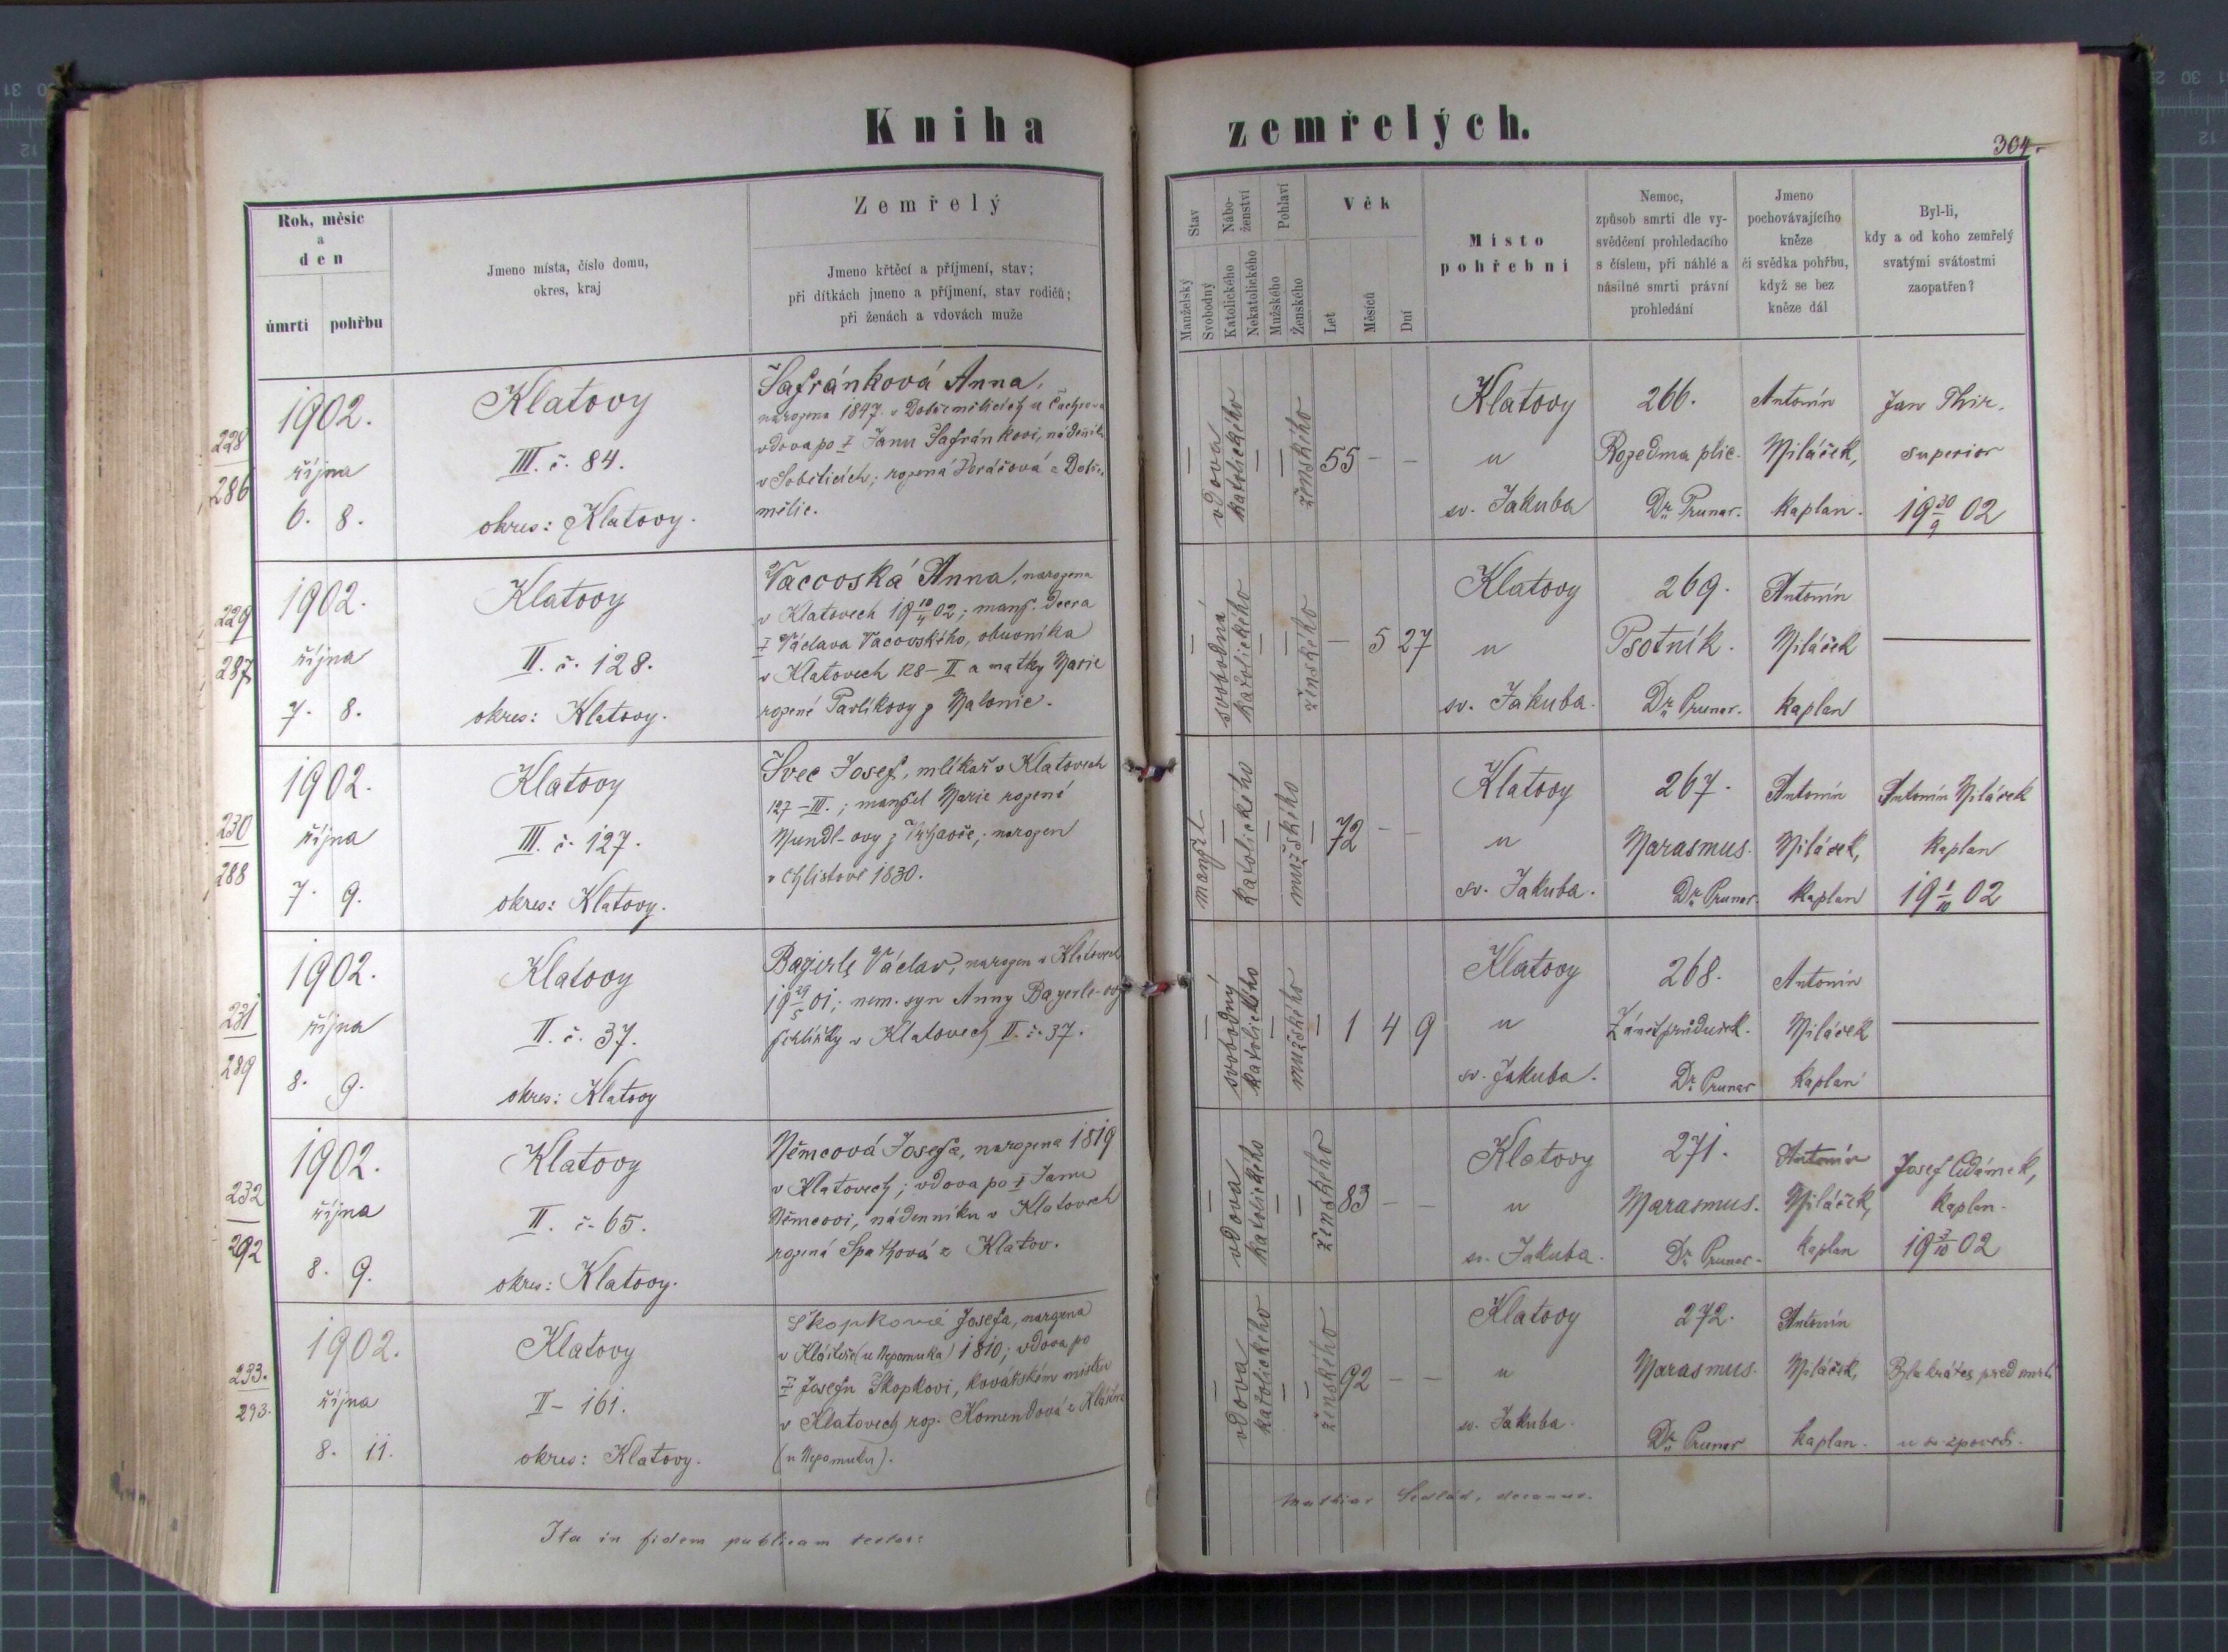 Kniha zemřelých.
304.
Rok, měsíc
a
den
úmrtí pohřbu
Jmeno místa, číslo domu,
okres, kraj
Zemřelý
Jmeno křtěcí a příjmení, stav;
při dítkách jmeno a příjmení, stav rodičů;
při ženách a vdovách muže
Stav
Manželský
Svobodný
Náboženství
Katolického
Nekatolického
Pohlaví
Mužského
Ženského
Věk
Let
Měsíců
Dní
Místo
pohřební
Nemoc,
způsob smrti dle vy-
svědčení prohledacího
s číslem, při náhlé a
násilné smrti právní
prohledání
Jmeno
pochovávajícího
kněze
či svědka pohřbu,
když se bez
kněze dál
Byl-li,
kdy a od koho zemřelý
svatými svátostmi
zaopatřen?
228
286
1902.
října
6. 8.
Klatovy
III. č. 84.
okres: Klatovy.
Šafránková Anna,
narozena 1847 v Dobřeměřicích u Čachrova
vdova po † Janu Šafránkovi, nádeníku
v Soběticích; rozená
vdova
katolického
ženského
55 – –
Klatovy
u
sv. Jakuba
266.
Rozedma plic.
Dr. Prunar.
Antonín
Miláček,
kaplan.
Jan Thir.
superior
19 30/9 02
229
287
1902.
října
7. 8.
Klatovy
II. č. 128.
okres: Klatovy.
Vacovská Anna, narozena
v Klatovech 19 10/4 02; manž. dcera
† Václava Vacovského, obuvníka
v Klatovech 128–II a matky Marie
rozené Pavlíkovy z Malonic.
svobodná
katolického
ženského
– 5 27
Klatovy
u
sv. Jakuba.
269.
Psotník.
Dr. Prunar.
Antonín
Miláček
kaplan
230
288
1902.
října
7. 9.
Klatovy
III. č. 127.
okres: Klatovy.
Švec Josef, mlíkař v Klatovech
127–III.; manžel Marie rozené
Mundl-ovy z; narozen
v Chlistově 1830.
manžel
katolického
mužského
72 – –
Klatovy
u
sv. Jakuba.
267.
Marasmus.
Dr. Prunar.
Antonín
Miláček,
kaplan
Antonín Miláček
kaplan
19 1/10 02
231
289
1902.
října
8. 9.
Klatovy
II. č. 37.
okres: Klatovy
Bayerle Václav, narozen v Klatovech
19 29/5 01; nem. syn Anny Bayerle-ovy
v Klatovech II. č. 37.
svobodný
katolického
mužského
1 4 9
Klatovy
u
sv. Jakuba.
268.
Zánět průdušek.
Dr. Prunar
Antonín
Miláček
kaplan
232
292
1902.
října
8. 9.
Klatovy
II. č. 65.
okres: Klatovy.
Němcová Josefa, narozena 1819
v Klatovech; vdova po † Janu
Němcovi, nádenníku v Klatovech
rozená Špathová z Klatov.
vdova
katolického
ženského
83 – –
Klatovy
u
sv. Jakuba.
271.
Marasmus.
Dr. Prunar.
Antonín
Miláček,
kaplan
Josef Adámek,
kaplan.
19 3/10 02
233.
293.
1902.
října
8. 11.
Klatovy
II – 161.
okres: Klatovy.
Škopková Josefa, narozena
v Klášteře (u Nepomuka) 1810; vdova po
† Josefu Škopkovi, kovářském mistru
v Klatovech roz. Komendová z Kláštera
(u Nepomuku).
vdova
katolického
ženského
92 – –
Klatovy
u
sv. Jakuba.
272.
Marasmus.
Dr. Prunar
Antonín
Miláček,
kaplan.
Byla krátce před smrtí
u sv. zpovědi.
Ita in fidem publicam testor:
Mathias Sedlák, decanus.